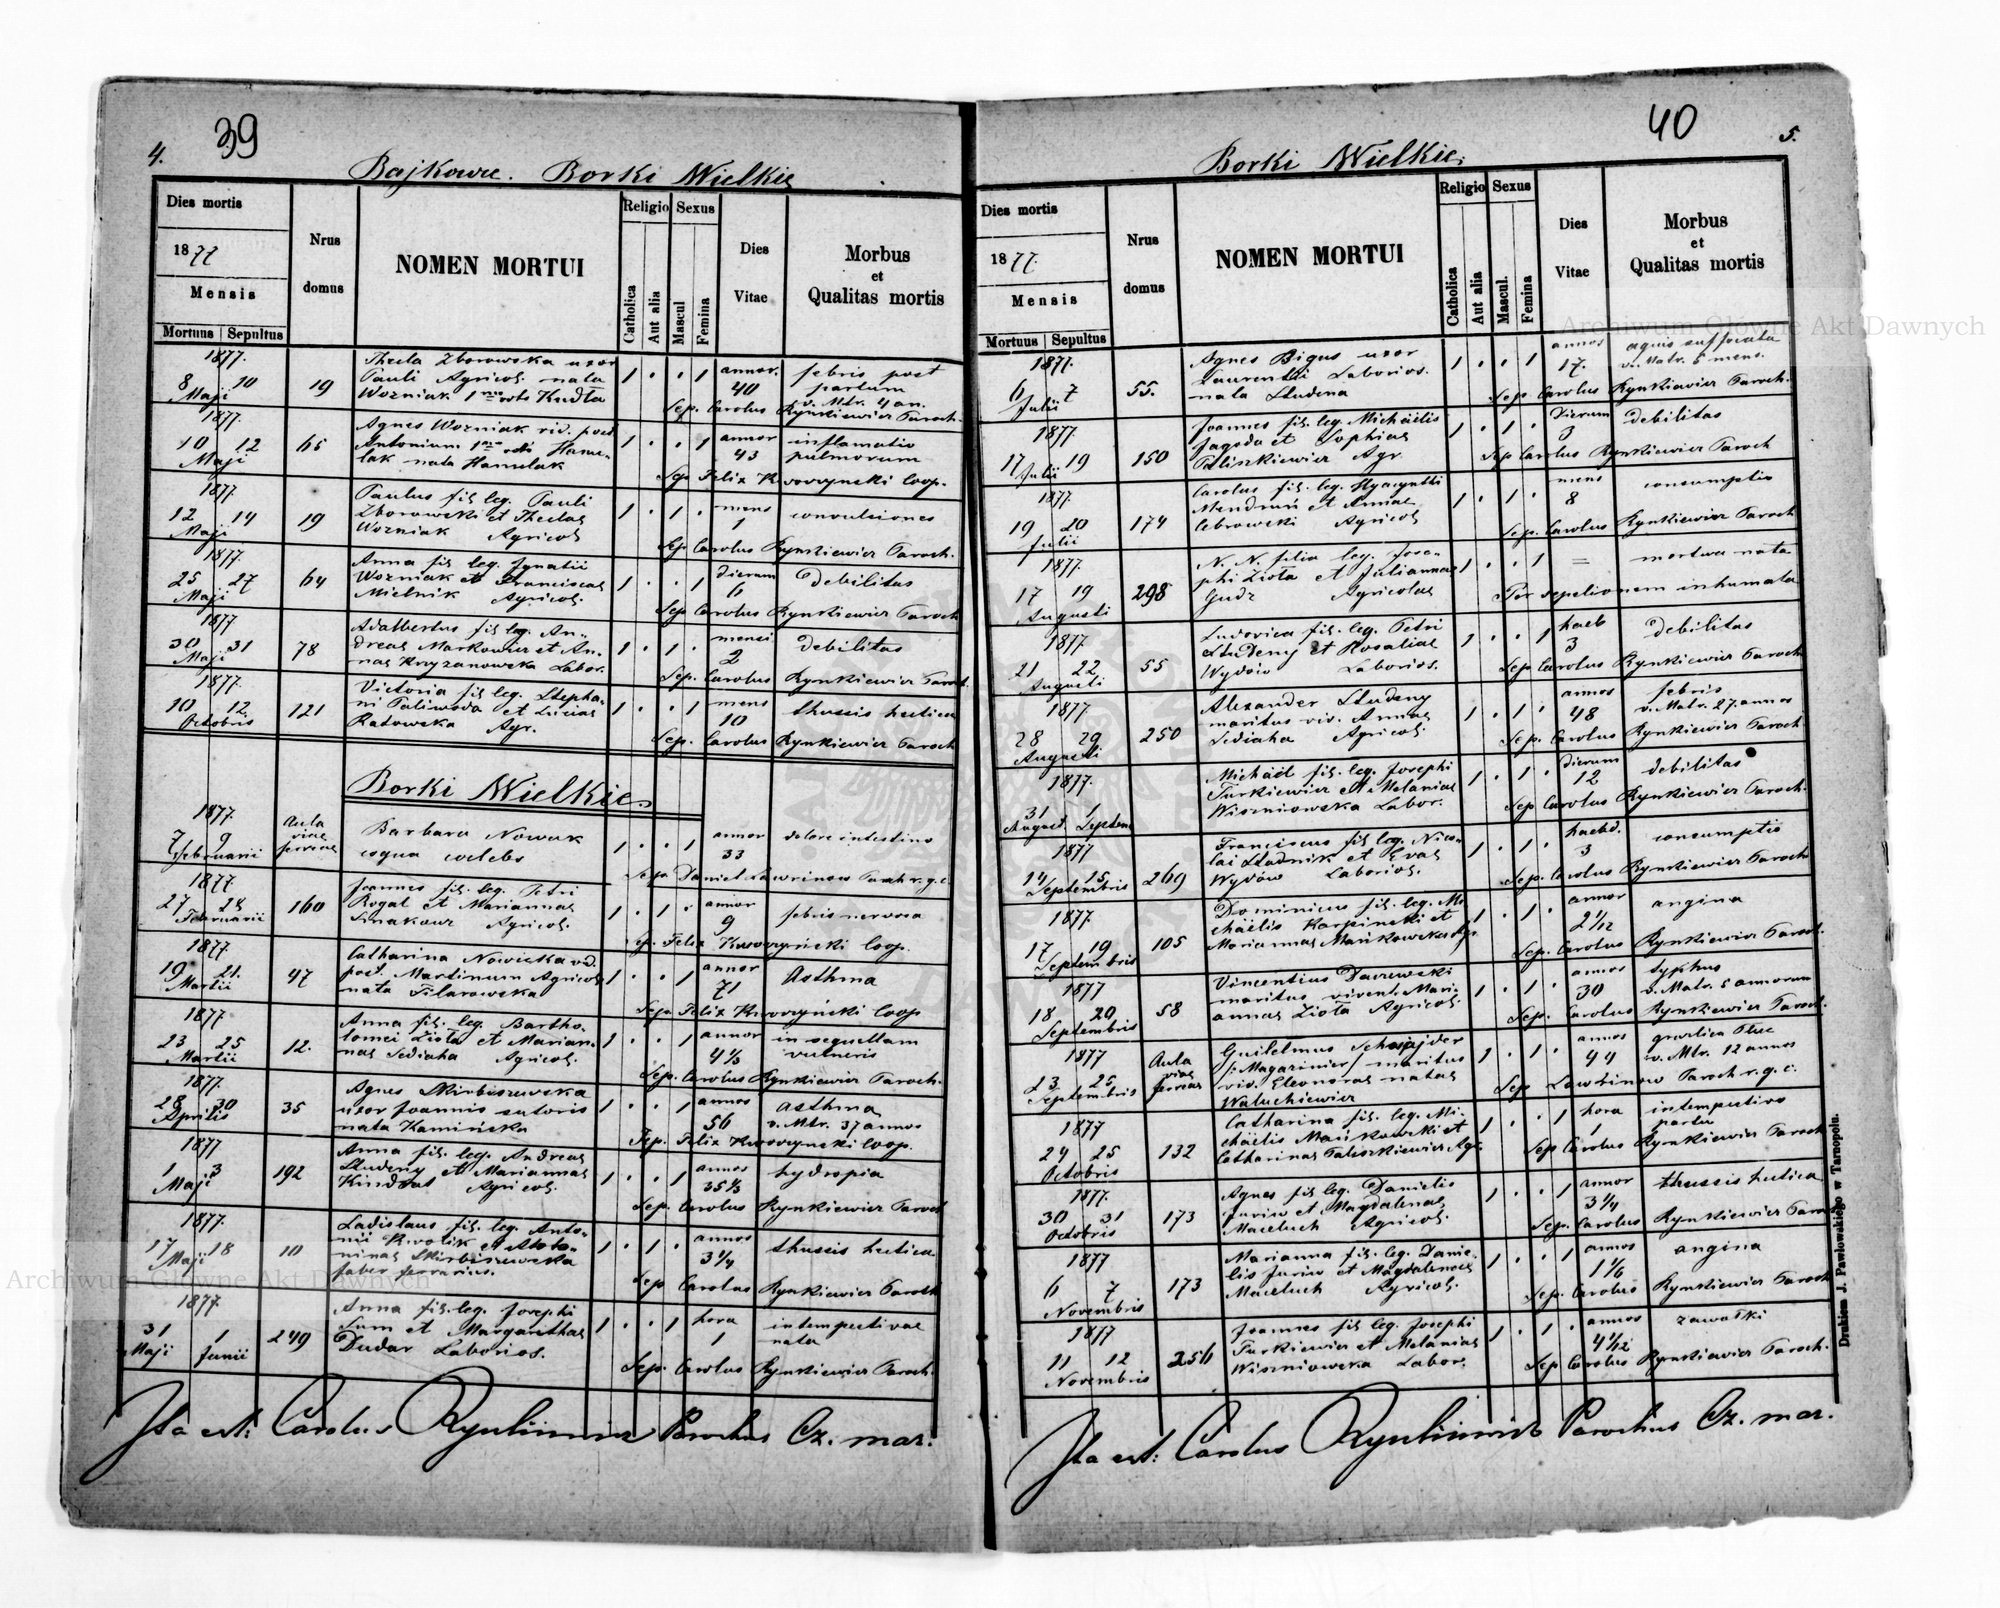 4.
39
Bajkowce. Borki Wielkie
Dies mortis
1877
Mensis
Mortuus Sepultus
Nrus domus
NOMEN MORTUI
Religio
Catholica
Aut alia
Sexus
Mascul
Femina
Dies Vitae
Morbus et Qualitas mortis
1877.
8 10 Maji 19
Thecla Zborowska uxor
Pauli Agricol. nata
Wozniak 1mo voto Kudła
1 . . 1 annor. 40
febris post partum
v. Mtr. 4 an.
Sep. Carolus Rynkiewicz Paroch.
1877.
10 12 Maji 65
Agnes Wozniak vid. post
Antonium 1mo voto Hanu-
lak nata Hanulak
1 . . 1 annor 43
inflamatio pulmorum
Sep. Felix Kwovzynski Coop.
1877.
12 14 Maji 19
Paulus fil. leg. Pauli
Zborowski et Theclae
Wozniak Agricol
1 . 1 . mens 1
convulsiones
Sep. Carolus Rynkiewicz Paroch.
1877.
25 27 Maji 64
Anna fil. leg. Ignatii
Wozniak et Franciscae
Mielnik Agricol.
1 . . 1 dierum 6
Debilitas
Sep. Carolus Rynkiewicz Paroch
1877
30 31 Maji 78
Adalbertus fil. leg. An-
dreae Markowicz et An-
nae Kryzanowska Labor.
1 . 1 . mensi 2
debilitas
Sep. Carolus Rynkiewicz Paroch.
1877.
10 12 Octobris 121
Victoria fil. leg. Stepha-
ni Paliwoda et Luciae
Ratowska Agr.
1 . . 1 mens 10
thussis hectica
Sep. Carolus Rynkiewicz Paroch
Borki Wielkie.
1877.
7 9 februarii Aula viae ferreae
Barbara Nowak
coqua celebs
1 . . 1 annor 33
dolore intestino
Sep. Daniel Lawrinow Paroh r. g. c.
1877.
27 28 Februarii 160
Joannes fil. leg. Petri
Rogal et Mariannae
Smakowz Agricol.
1 . 1 . annor 9
febris nervosa
Sep. Felix Kwovzyński Coop.
1877
19 21. Martii 47
Catharina Nowicka vid.
post. Martinum Agricol
nata Pilarowska
1 . . 1 annor 71
Asthma
Sep. Felix Kwovzyński Coop
1877
23 25 Martii 12.
Anna fil. leg. Bartho-
lomei Ziola et Marian-
nae Sediaha Agricol.
1 . . 1 annor 4 1/3
in sequellam vulneris
Sep. Carolus Rynkiewicz Paroch.
1877.
28 30 Aprilis 35
Agnes Skirbiszewska
uxor Joannis sutoris
nata Kamińska
1 . . 1 annos 56
asthma
v. Mtr. 37 annos
Sep. Felix Kwovzynski Coop.
1877
1 3 Maji 192
Anna fil. leg. Andreae
Studeny et Mariannae
Kindrat Agricol.
1 . . 1 annos 35 1/3
hydropia
Sep. Carolus Rynkiewicz Paroch
1877.
17 18 Maji 10
Ladislaus fil. leg. Anto-
nii Kwolik et Anto-
ninae Skirbiszewska
faber ferrarius.
1 . 1 . annos 3 1/4
thussis hectica
Sep Carolus Rynkiewicz Paroch
1877.
31 Maji 1 Junii 249
Anna fil. leg. Josephi
Sum et Margarethae
Dudar Laborios.
1 . . 1 hora 1
intempectivae nata
Sep. Carolus Rynkiewicz Paroch.
Ita est: Carolus Rynkiewicz Parochus Cz. mar.
40
5.
Borki Wielkie.
Dies mortis
1877.
Mensis
Mortuus Sepultus
Nrus domus
NOMEN MORTUI
Religio
Catholica
Aut alia
Sexus
Mascul.
Femina
Dies Vitae
Morbus et Qualitas mortis
1877.
6 7 Julii 55.
Agnes Bigus uxor
Laurentii Laborios.
nata Studena
1 . . 1 annos 17.
aquis suffocata
v. Matr. 5 mens.
Sep. Carolus Rynkiewicz Paroch.
1877
17 19 Julii 150
Joannes fil. leg. Michaelis
Jagoda et Sophiae
Paliszkiewicz Agr.
1 . 1 . Dierum 3
debilitas
Sep Carolus Rynkiewicz Paroch
1877
19 20 Julii 174
Carolus fil. leg. Hyacynthi
Mendruń et Annae
Cebrowski Agricol
1 . 1 . mens 8
consumptio
Sep. Carolus Rynkiewicz Paroch
1877
17 19 Augusti 298
N. N. filia leg. Jose-
phi Ziola et Juliannae
Gudz Agricolae
1 . . 1 =
mortua nata
Per sepelionem inhumata
1877
21 22 Augusti 55
Ludovica fil. leg. Petri
Studeny et Rosaliae
Wydów Laborios.
1 . . 1 haeb 3
debilitas
Sep. Carolus Rynkiewicz Paroch
1877
28 29 Augusti 250
Alexander Studeny
maritus viv. Annae
Sediaha Agricol.
1 . 1 . annos 48
febris
v. Matr. 27. annos
Sep. Carolus Rynkiewicz Paroch.
1877.
31 August. 1 Septem
Michaël fil. leg. Josephi
Turkiewicz et Melaniae
Wiszniowska Labor.
1 . 1 . dierum 12
debilitas
Sep Carolus Rynkiewicz Paroch.
1877
14 15 Septembris 269
Franciscus fil. leg. Nico-
lai Stadnik et Evae
Wydów Laborios.
1 . 1 . haebd. 3
consumptio
Sep. Carolus Rynkiewicz Paroch
1877
17 19 Septembris 105
Dominicus fil. leg. Mi-
chaëlis Karpinski et
Mariannae Mańkowska Agr.
1 . 1 . annor 2 1/12
angina
Sep. Carolus Rynkiewicz Paroch.
1877
18 20 Septembris 58
Vincentius Daszewski
maritus vivent. Mari-
annae Ziola Agricol.
1 . 1 . annos 30
typhus
v. Matr. 5 annorum
Sep. Carolus Rynkiewicz Paroch.
1877
23 25 Septembris Aula viae ferreae
Guilelmus Schnajder
/: Magazinier/ maritus
viv. Eleonorae natae
Waluchiewicz
1 . 1 . annos 44
v. Mtr. 12 annos
Sep Lawrinow Paroch r. g. c.
1877
24 25 Octobris 132
Catharina fil. leg. Mi-
chäelis Mańkowski et
Catharinae Paliszkiewicz Agr.
1 . . 1 hora 1
intempectivo partu
Sep Carolus Rynkiewicz Paroch
1877.
30 31 Octobris 173
Agnes fil. leg. Danielis
Juriw et Magdalenae
Maceluch Agricol.
1 . . 1 annor 3 1/4
thussis hectica
Sep. Carolus Rynkiewicz Paroch
1877
6 7 Novembris 173
Marianna fil. leg. Danie-
lis Juriw et Magdalenae
Maceluch Agricol.
1 . . 1 annos 1 1/6
angina
Sep. Carolus Rynkiewicz Paroch
1877
11 12 Novembris 256
Joannes fil. leg. Josephi
Turkiewicz et Melaniae
Wiszniowska Labor.
1 . 1 . annos 4 1/12
zawałki
Sep Carolus Rynkiewicz Paroch.
Ita est: Carolus Rynkiewicz Parochus Cz. mar.
Drukiem J. Pawłowskiego w Tarnopolu.
Archiwum Główne Akt Dawnych
Archiwum Główne Akt Dawnych